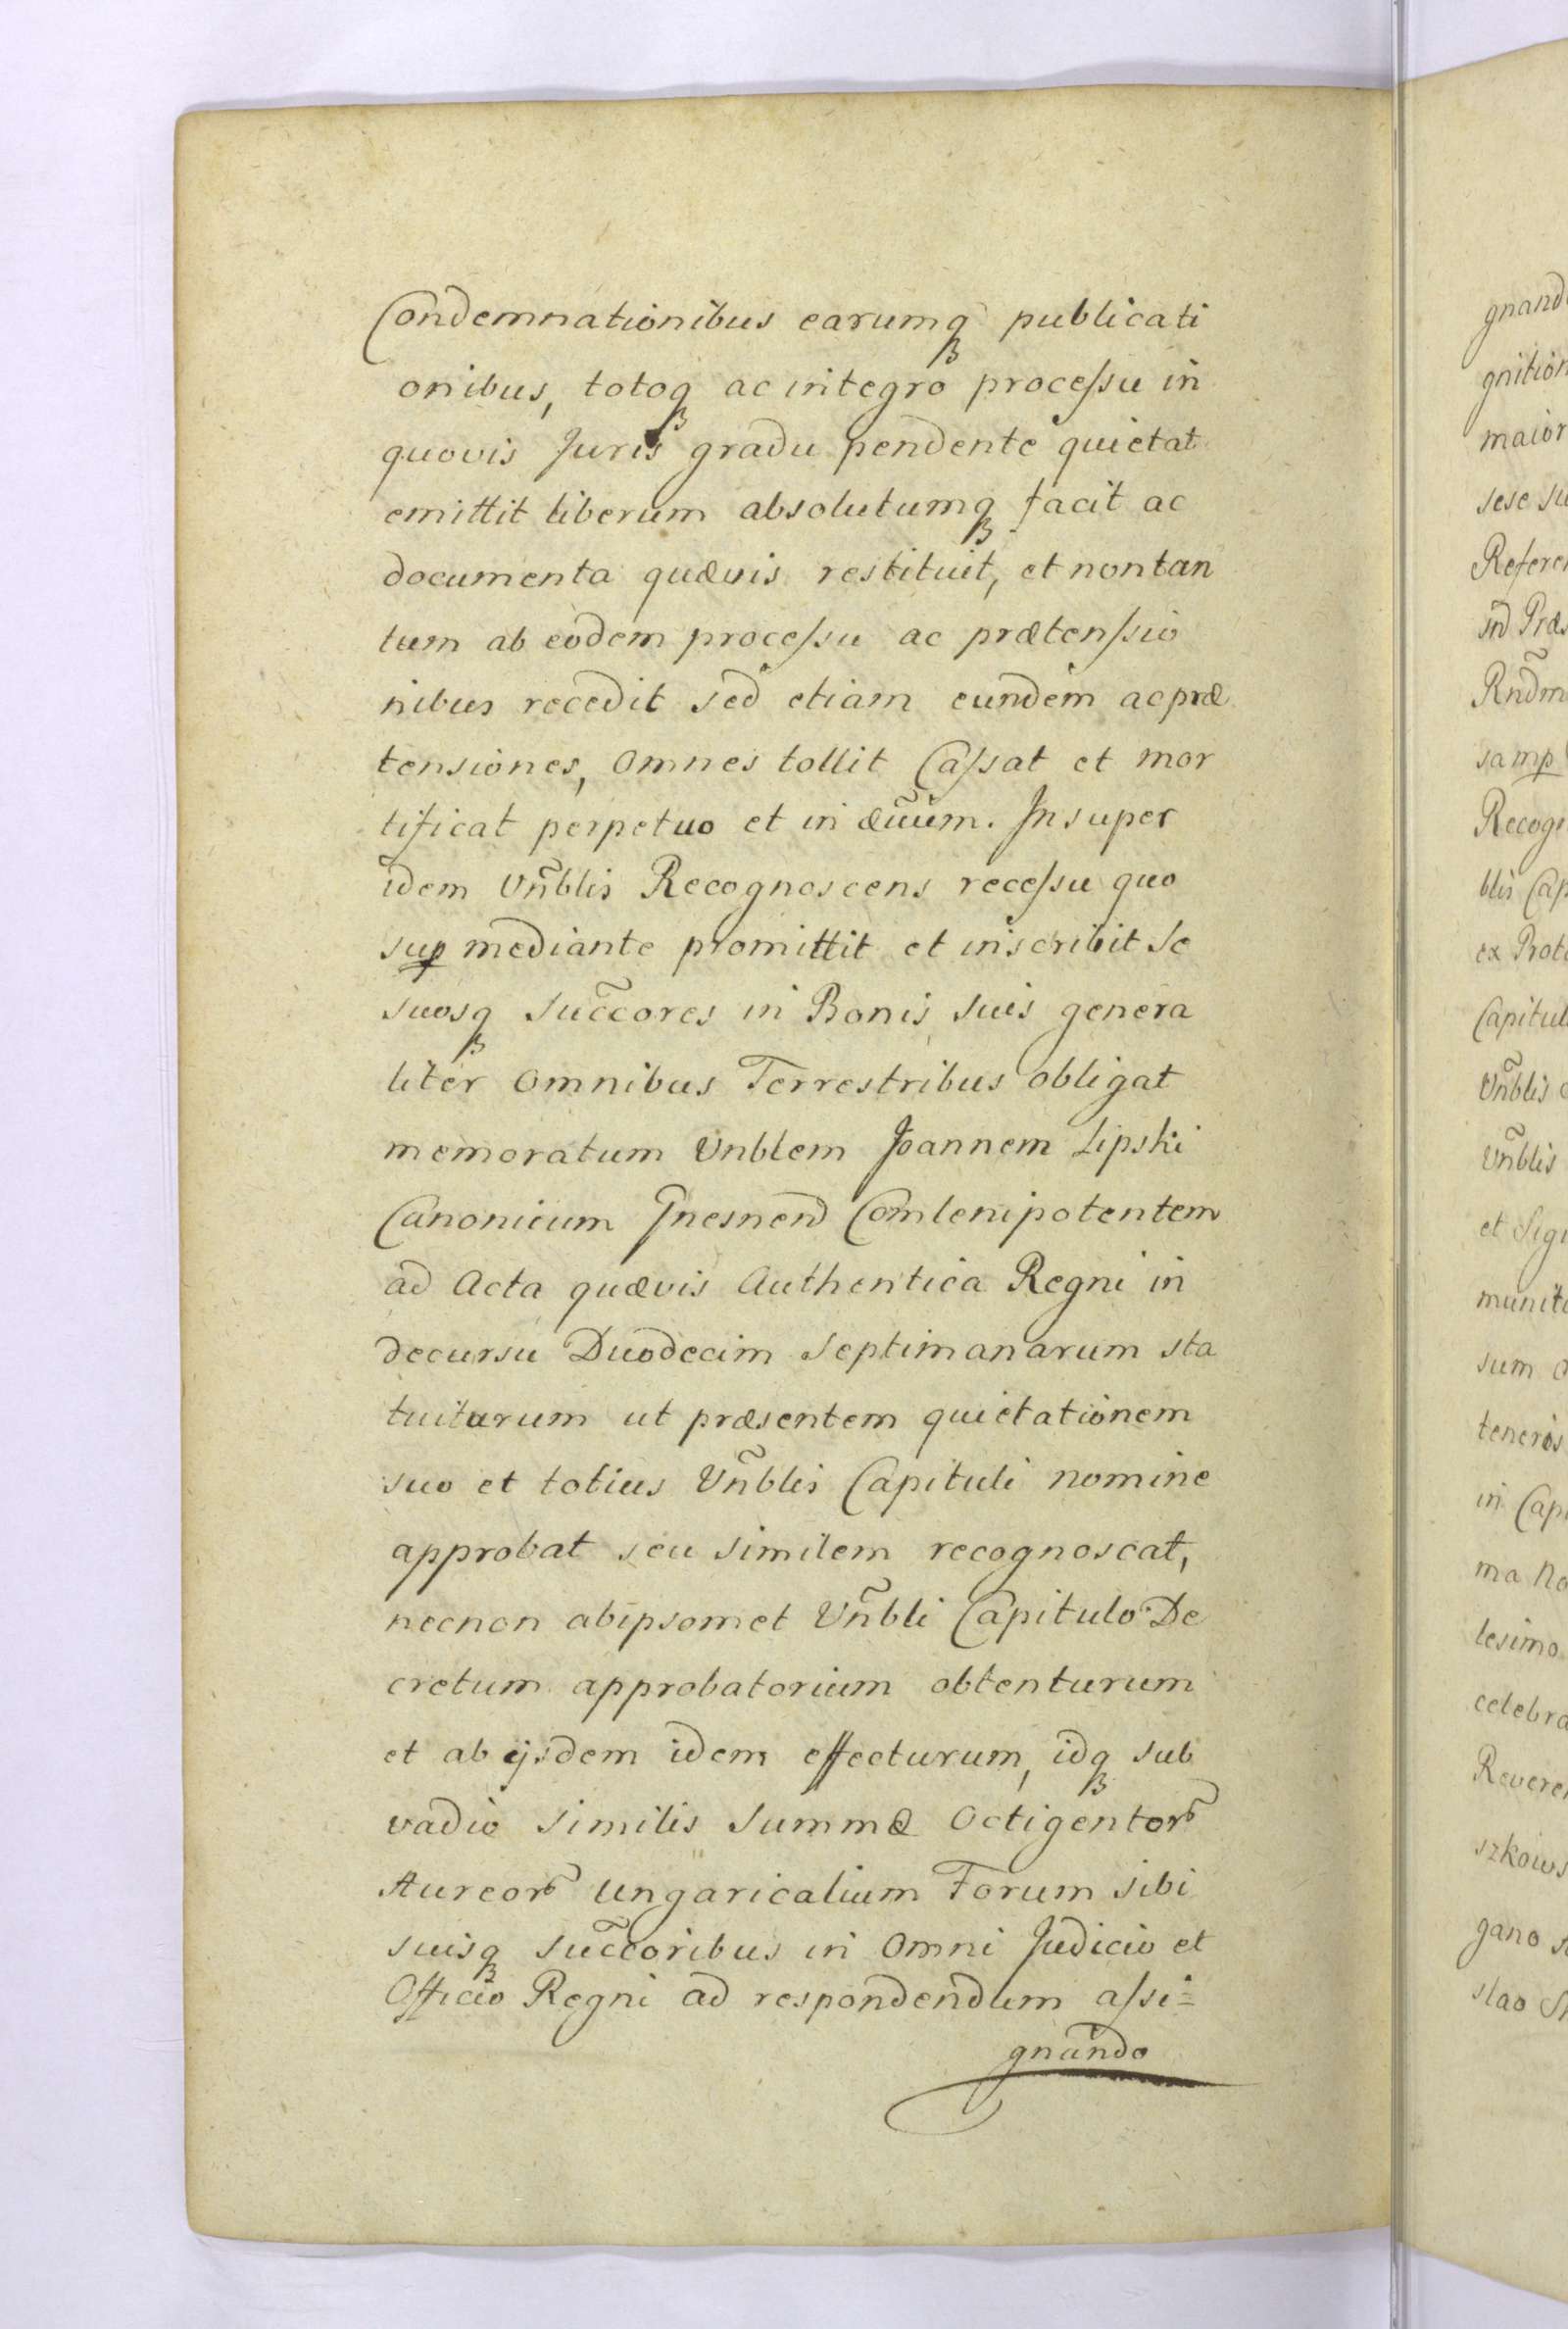 Condemnationibus earumq̃ publicati
onibus, totoq̃ ac integro processu in
quovis Juris gradu pendente quietat
emittit liberum absolutumq̃ facit ac
documenta quævis restituit, et non tan
tum ab eodem processu ac prætenssio
nibus recedit sed etiam eundem ac præ
tensiones, Omnes tollit Cassat et mor
tificat perpetuo et in æ̃vum. Insuper
idem Vñblis Recognoscens recessu quo
sup mediante promittit et inscribit se
suosq̃ Succ̃ores in Bonis suis genera
liter Omnibus Terrestribus obligat
memoratum Vnblem Joannem Lipski
Canonicum Gnesnen̄ Complenipotentem
ad Acta quævis Authentica Regni in
decursu Duodecim Septimanarum sta
tuiturum ut præsentem quietationem
suo et totius Vñblis Capituli nomine
approbat seu similem recognoscat,
necnon ab ipsomet Vñbli Capitulo De
cretum approbatorium obtenturum
et ab ijsdem idem effecturum, idq̃ sub
vadio similis Summæ Octigentor̃
Aureor̃ Ungaricalium Forum sibi
suisq̃ Succ̃oribus in Omni Judicio et
Officio Regni ad respondendum assi=
gnando
gnand
gnition
maior
sese su
Referen
Ind Præs
Rñdm
samp
Recogn
blis Cap
ex Proto
Capitul
Vñblis
Vñblis
et Sigi
munit
sum
teneris
in Capi
ma No
lesimo
celebra
Reveren
szkows
gano s
slao S